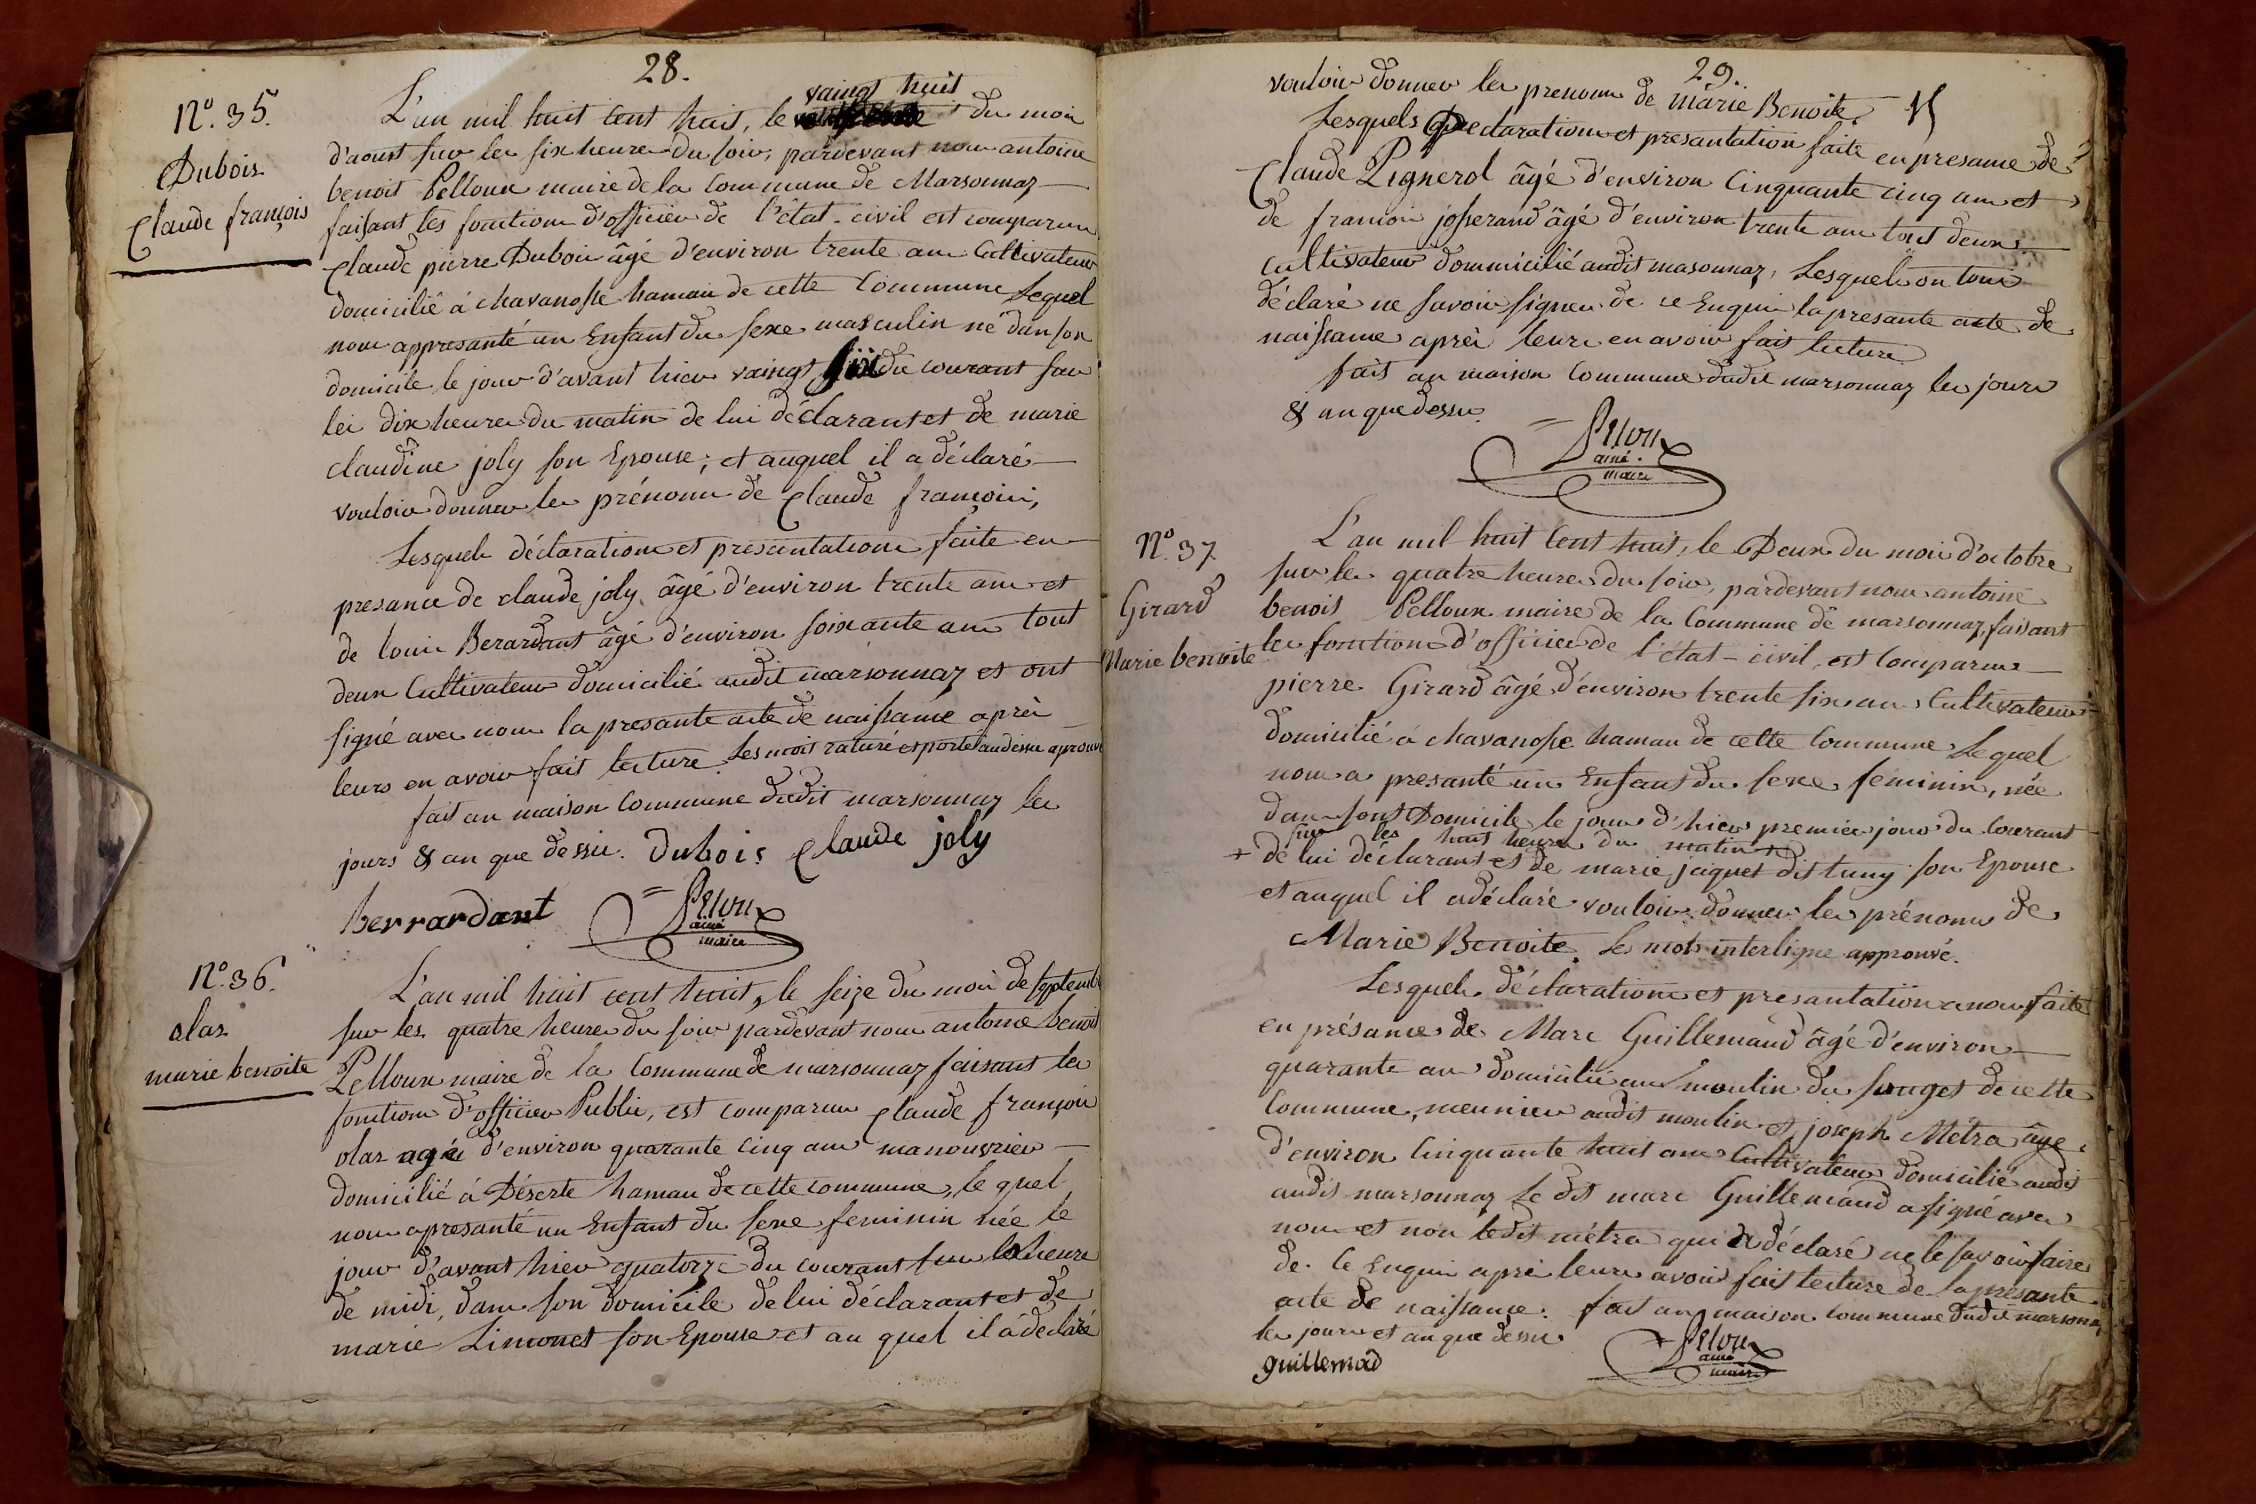 28.
N.º 35.
Dubois
Claude françois
L'an mil huit cent huit, le vaingt huit du mois
d'aoust sur les six heures du soir, pardevant nous antoine
benoit Pelloux maire de la Commune de Marsonnaz
faisant les fonctions d'officier de l'état-civil est comparu
Claude pierre Dubois âgé d'environ trente ans Cultivateur
domicilié à chavanosse hamau de cette Commune Lequel
nous appresanté un Enfant du sexe masculin né dan son
domicile le jour d'avant hier vaingt six du courant sur
les dix heures du matin de lui déclarant et de marie
claudine joly son Epouse; et auquel il a déclaré
vouloir donner les prénoms de Claude françois,
Lesquels déclaration et presantation faite en
presance de claude joly âgé d'environ trente ans et
de louis Berardant âgé d'environ soixante ans tout
deux Cultivateur domicilié audit marsonnaz et ont
signé avec nous la presante acte de naissance après
leurs en avoir fait lecture. Les mois raturé et porté audessu aprouvé
fait en maison Commune dudit marsonnaz les
jours & an que dessu. Dubois Claude joly
berrardant Peloux
ainé
maire
N.º 36.
olas
marie benoite
L'an mil huit cent huit, le seize du mois de septembre
sur les quatre heures du soir pardevant nous antoine benoit
Pelloux maire de la Commune de marsonnaz faisant les
fonctions d'officier Public, est comparu Claude françois
olas agé d'environ quarante cinq ans manouvrier
domicilié à Déserte hamau de cette commune, le quel
nous apresanté un Enfant du sexe feminin née le
jour d'avant hier quatorze du courant sur les heures
de midi, dans son domicile de lui déclarant et de
marie Limonet son Epouse et au quel il à déclaré
29.
vouloir donner les prenoms de marie Benoite.
Lesquels Declaration et presantation faite en presance de
Claude Pignerol âgé d'environ Cinquante cinq ans et
de francois josserand âgé d'environ trente ans tout deux
Cultivateur dommicilié audit masonnaz, Lesquels on tous
déclaré ne savoir signer de ce Enquis la presante acte de
naissance après leurs en avoir fait lecture
fait en maison Commune dudit marsonnaz les jours
& an que dessu.
Peloux
ainé.
maire
N.º 37.
Girard
Marie benoite
L'an mil huit Cent huit, le Deux du mois d'octobre
sur les quatre heures du soir, pardevant nous antoine
benois Pelloux maire de la Commune de marsonnaz, faisant
les fonctions d'officier de l'état-civil, est Comparu
pierre Girard âgé d'environ trente six ans Cultivateur
domicilié à chavanosse hamau de cette Commune Lequel
nous a presanté un Enfant du sexe féminin, née
dans sont Domicile le jour d'hier premier jour du Courant
sur les huit heures du matin
+ de lui déclarant et de marie jaquet dit tuny son Epouse
et auquel il a déclaré vouloir donner les prénoms de
Marie Benoite. Le mots interligne approuvé.
Lesquels déclaration et presantation a nous faite
en présance de Marc Guillemaud âgé d'environ
quarante ans domicilié au moulin du souget de cette
Commune, meunier audit moulin et joseph Métra âgé
d'environ Cinquante huit ans Cultivateur domicilié audit
audit marsonnaz Le dit marc Guillemaud a signé avec
nous et non ledit métra qui a déclaré ne le savoir faire
de ce Enquis après leurs avoir fait lecture de la presante
acte de naissance. fait en maison commune dudit marsonnaz
les jours et an que dessu.
guillemad
Peloux
ainé
maire